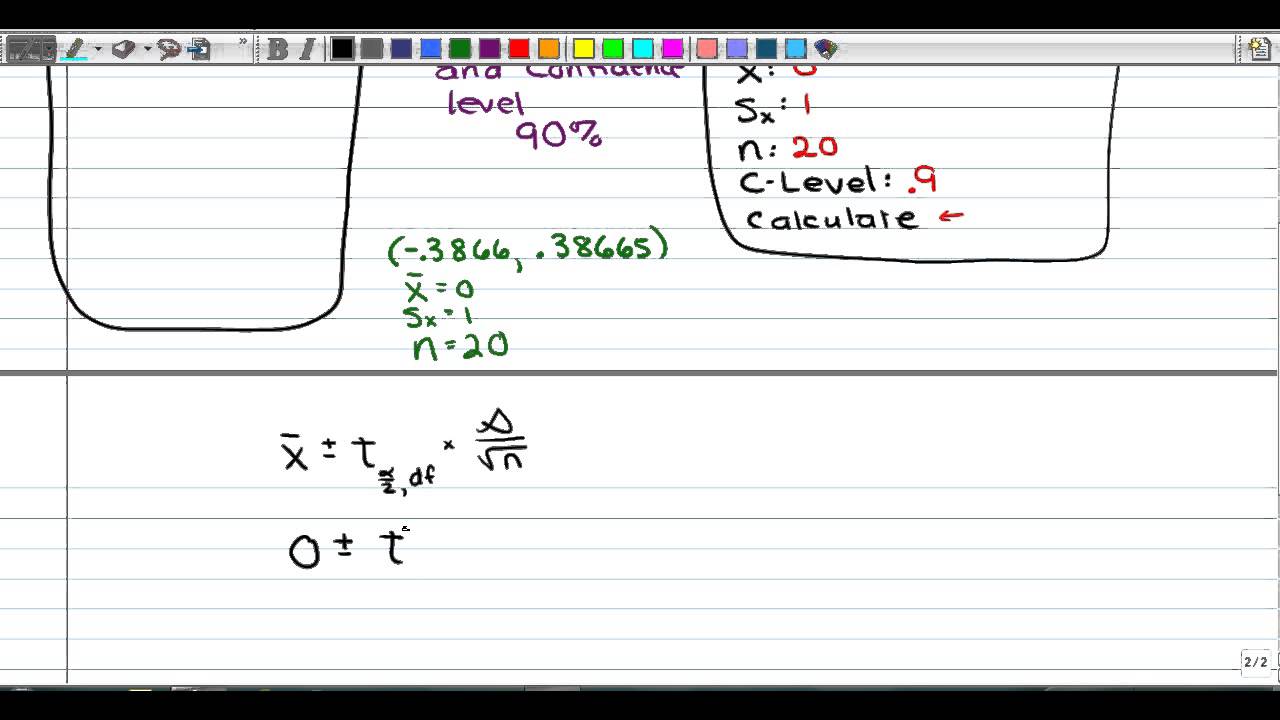 B I
and confidence
level
90%
x̄: 0
Sx: 1
n: 20
C-Level: .9
Calculate ←
(-.3866, .38665)
x̄ = 0
Sx = 1
n = 20
x̄ ± t α/2, df × s/√n
0 ± t
2/2